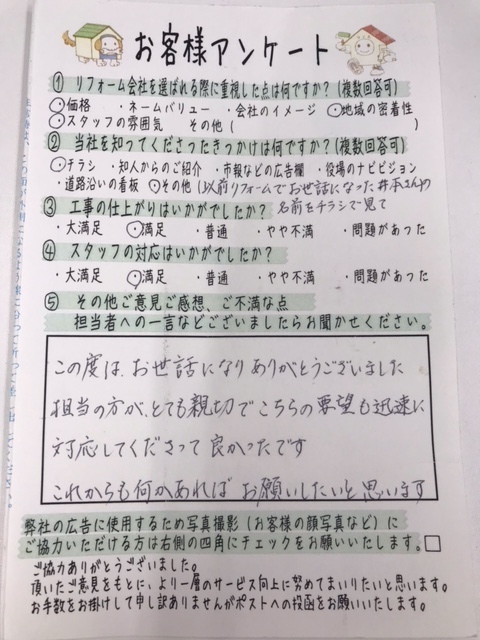 お客様アンケート
① リフォーム会社を選ばれる際に重視した点は何ですか?(複数回答可)
・価格 ・ネームバリュー ・会社のイメージ ・地域の密着性
・スタッフの雰囲気 その他( )
② 当社を知ってくださったきっかけは何ですか?(複数回答可)
・チラシ ・知人からのご紹介 ・市報などの広告欄 ・役場のナビビジョン
・道路沿いの看板 ・その他(以前リフォームでお世話になった井本さんの
名前をチラシで見て
③ 工事の仕上がりはいかがでしたか?
・大満足 ・満足 ・普通 ・やや不満 ・問題があった
④ スタッフの対応はいかがでしたか?
・大満足 ・満足 ・普通 ・やや不満 ・問題があった
⑤ その他ご意見ご感想、ご不満な点
担当者への一言などございましたらお聞かせください。
この度は、お世話になりありがとうございました
担当の方が、とても親切でこちらの要望も迅速に
対応してくださって良かったです
これからも何かあれば お願いしたいと思います
弊社の広告に使用するため写真撮影(お客様の顔写真など)に
ご協力いただける方は右側の四角にチェックをお願いいたします。□
ご協力ありがとうございました。
頂いたご意見をもとに、より一層のサービス向上に努めてまいりたいと思います。
お手数をお掛けして申し訳ありませんがポストへの投函をお願いいたします。